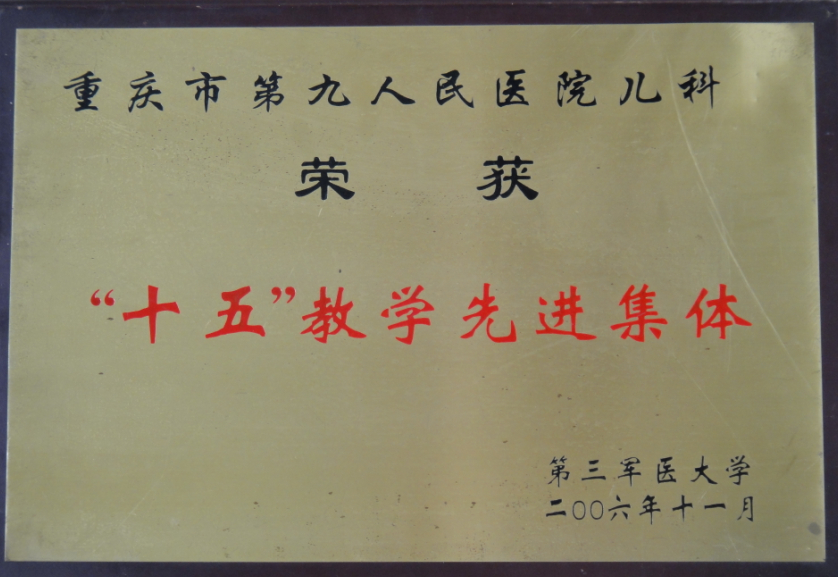 重庆市第九人民医院儿科
荣获
“十五”教学先进集体
第三军医大学
二〇〇六年十一月